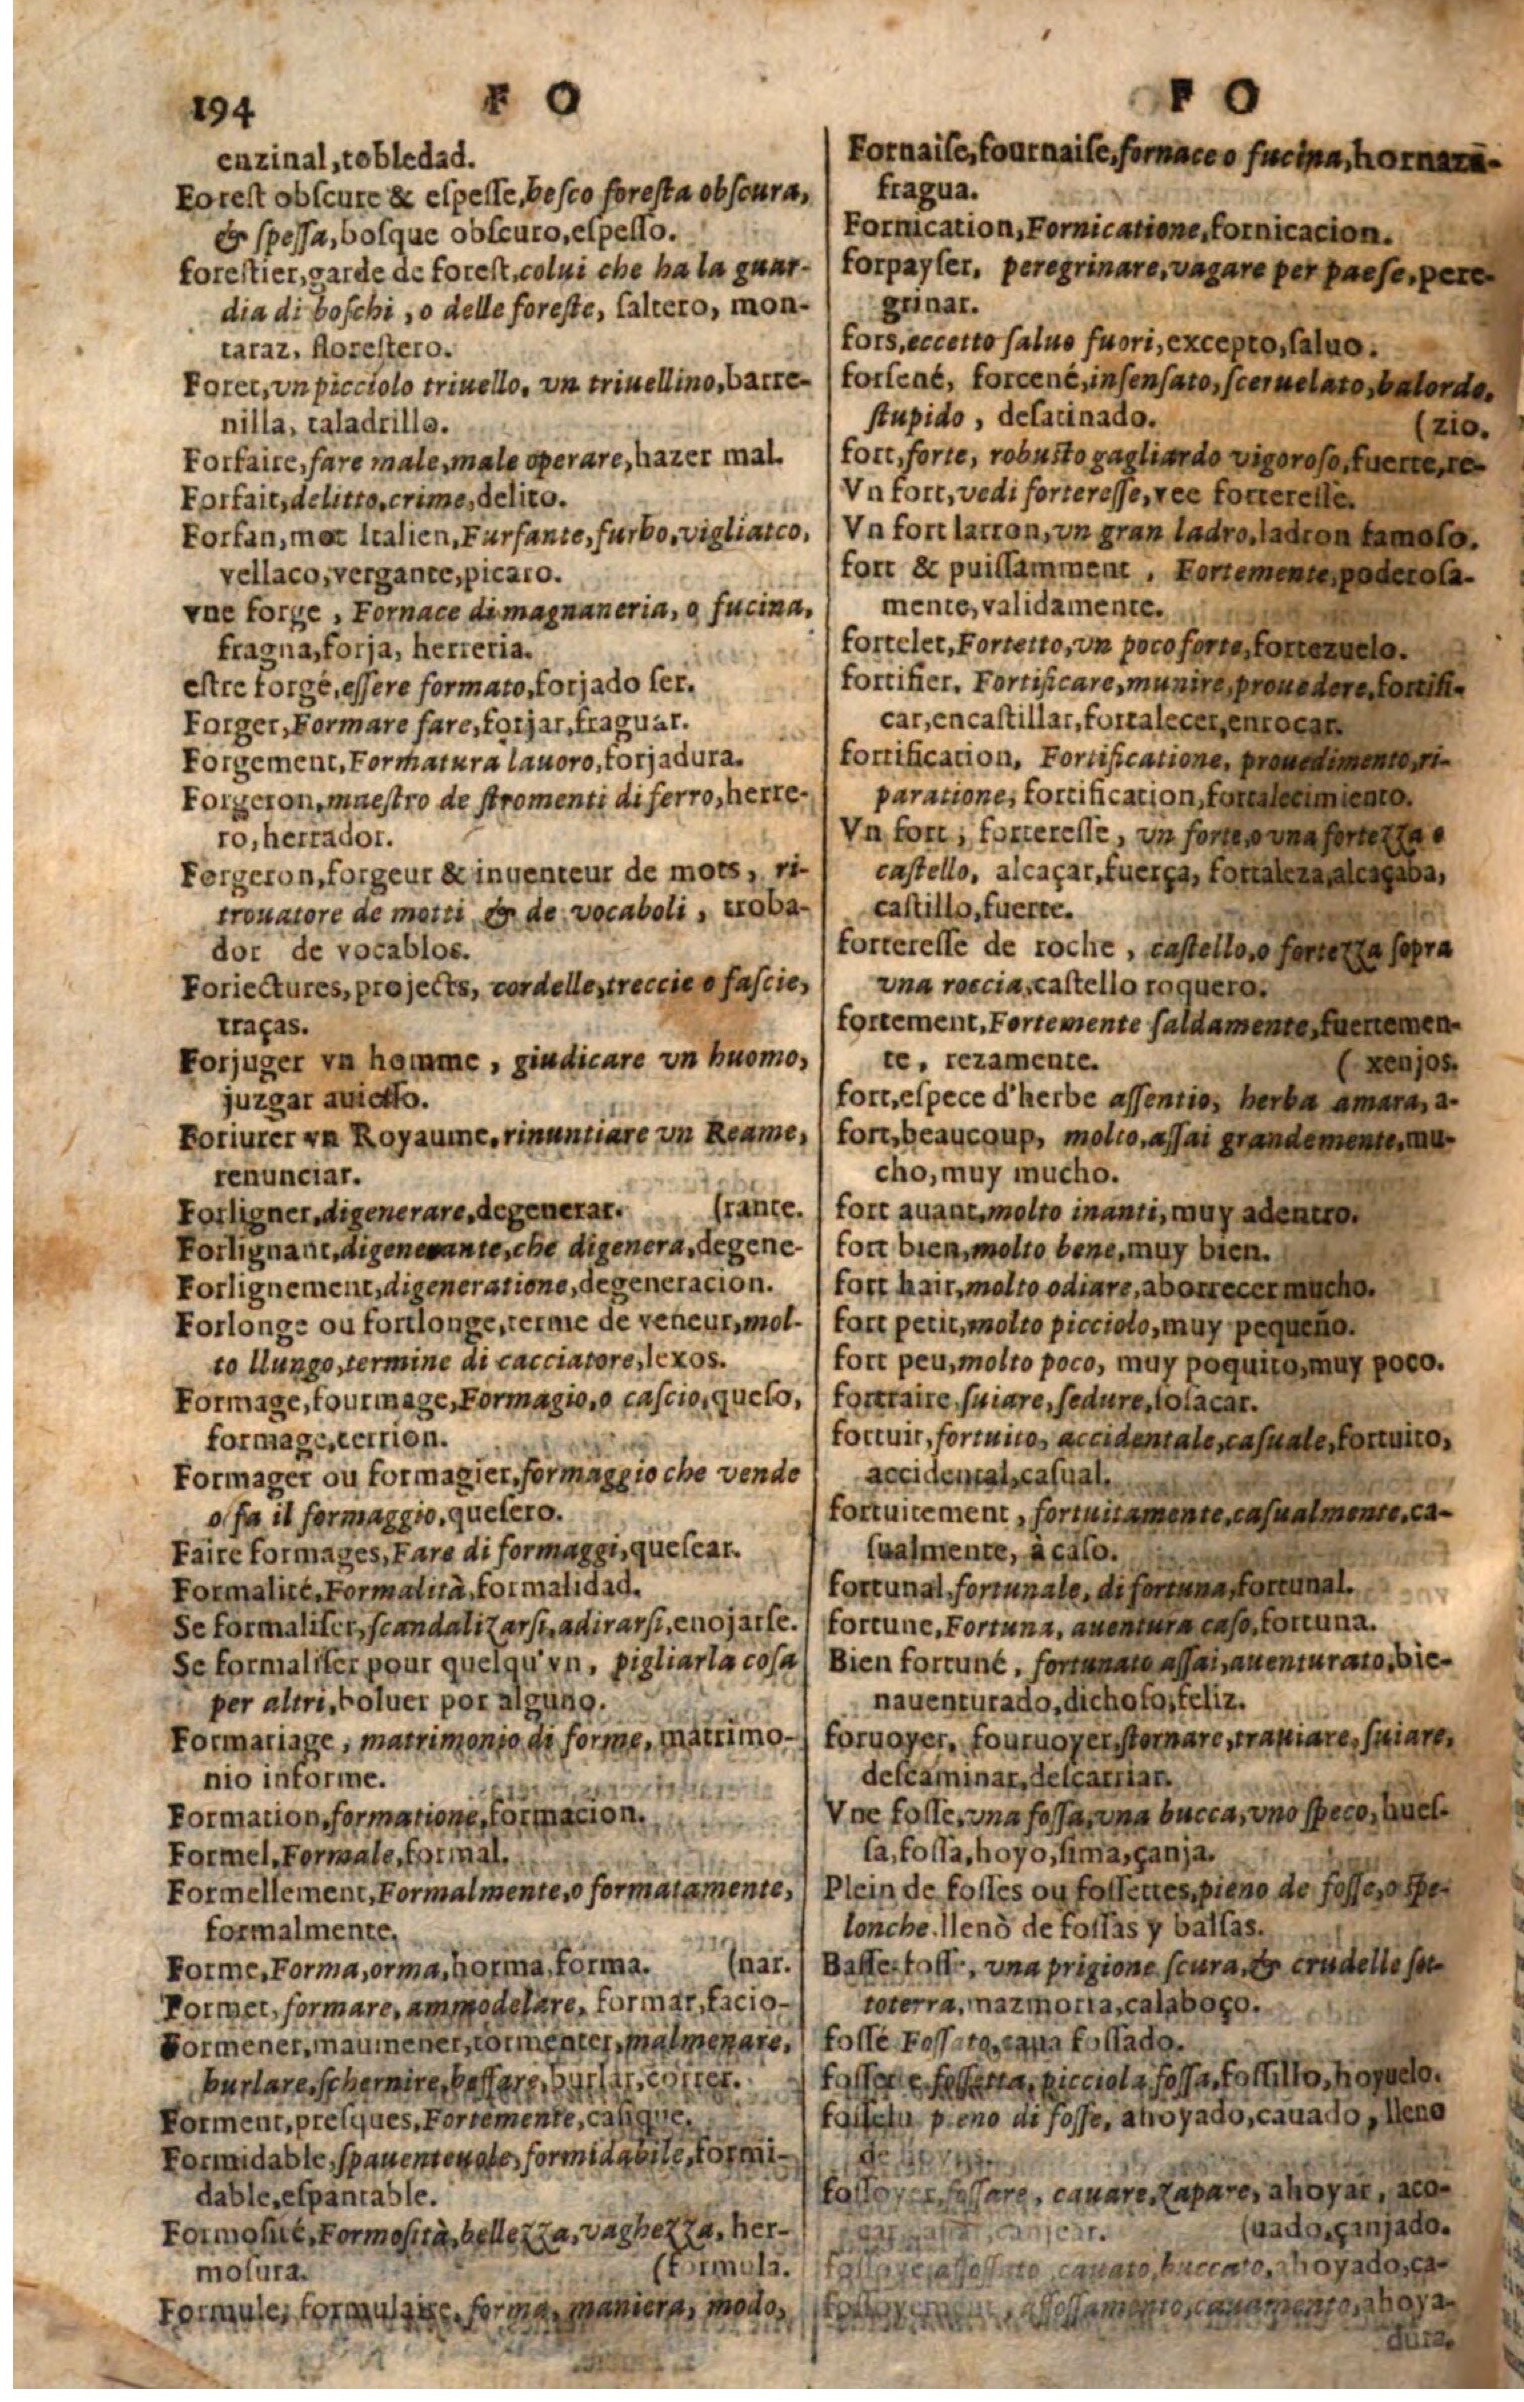 194 F O
enzinal, tobledad.
Forest obscure & espesse, besco foresta obscura,
& spessa, bosque obscuro, espesso.
forestier, garde de forest, colui che ha la guar-
dia di boschi, o delle foreste, saltero, mon-
taraz, florestero.
Foret, vn picciolo triuello, vn triuellino, barre-
nilla, taladrillo.
Forfaire, fare male, male operare, hazer mal.
Forfait, delitto, crime, delito.
Forfan, mot Italien, Furfante, furbo, vigliatco,
vellaco, vergante, picaro.
vne forge, Fornace di magnaneria, o fucina,
fragna, forja, herreria.
estre forgé, essere formato, forjado ser.
Forger, Formare fare, forjar, fraguar.
Forgement, Formatura lauoro, forjadura.
Forgeron, maestro de stromenti di ferro, herre-
ro, herrador.
Forgeron, forgeur & inuenteur de mots, ri-
trouatore de motti & de vocaboli, troba-
dor de vocablos.
Foriectures, projects, cordelle, treccie o fascie,
traças.
Forjuger vn homme, giudicare vn huomo,
juzgar auiesso.
Foriurer vn Royaume, rinuntiare vn Reame,
renunciar.
Forligner, digenerare, degenerar. (rante.
Forlignant, digenerante, che digenera, degene-
Forlignement, digeneratione, degeneracion.
Forlonge ou fortlonge, terme de veneur, mol-
to llungo, termine di cacciatore, lexos.
Formage, fourmage, Formagio, o cascio, queso,
formage, terrion.
Formager ou formagier, formaggio che vende
o fa il formaggio, quesero.
Faire formages, Fare di formaggi, quesear.
Formalité, Formalità, formalidad.
Se formaliser, scandalizarsi, adirarsi, enojarse.
Se formaliser pour quelqu'vn, pigliarla cosa
per altri, boluer por alguno.
Formariage, matrimonio di forme, matrimo-
nio informe.
Formation, formatione, formacion.
Formel, Formale, formal.
Formellement, Formalmente, o formatamente,
formalmente.
Forme, Forma, orma, horma, forma. (nar.
Former, formare, ammodelare, formar, facio-
Formener, maumener, tormenter, malmenare,
burlare, schernire, beffare, burlar, correr.
Forment, presques, Fortemente, casique.
Formidable, spauenteuole, formidabile, formi-
dable, espantable.
Formosité, Formosità, bellezza, vaghezza, her-
mosura. (formula.
Formule, formulaire, forma, maniera, modo,
F O
Fornaise, fournaise, fornace o fucina, hornaza-
fragua.
Fornication, Fornicatione, fornicacion.
forpayser, peregrinare, vagare per paese, pere-
grinar.
fors, eccetto saluo fuori, excepto, saluo.
forsené, forcené, insensato, sceruelato, balordo,
stupido, desatinado. (zio.
fort, forte, robusto gagliardo vigoroso, fuerte, re-
Vn fort, vedi forteresse, vee forteresse.
Vn fort larron, vn gran ladro, ladron famoso.
fort & puissamment, Fortemente, poderosa-
mente, validamente.
fortelet, Fortetto, vn poco forte, fortezuelo.
fortifier, Fortificare, munire, prouedere, fortifi-
car, encastillar, fortalecer, enrocar.
fortification, Fortificatione, prouedimento, ri-
paratione, fortification, fortalecimiento.
Vn fort, forteresse, vn forte, o vna fortezza o
castello, alcaçar, fuerça, fortaleza, alcaçaba,
castillo, fuerte.
forteresse de roche, castello, o fortezza sopra
vna roccia, castello roquero.
fortement, Fortemente saldamente, fuertemen-
te, rezamente. ( xenjos.
fort, espece d'herbe assentio, herba amara, a-
fort, beaucoup, molto, assai grandemente, mu-
cho, muy mucho.
fort auant, molto inanti, muy adentro.
fort bien, molto bene, muy bien.
fort hair, molto odiare, aborrecer mucho.
fort petit, molto picciolo, muy pequeño.
fort peu, molto poco, muy poquito, muy poco.
fortraire, suiare, sedure, sosacar.
fortuit, fortuito, accidentale, casuale, fortuito,
accidental, casual.
fortuitement, fortuitamente, casualmente, ca-
sualmente, à caso.
fortunal, fortunale, di fortuna, fortunal.
fortune, Fortuna, auentura caso, fortuna.
Bien fortuné, fortunato assai, auenturato, bie-
nauenturado, dichoso, feliz.
foruoyer, fouruoyer, stornare, trauiare, suiare,
descaminar, descarriar.
Vne fosse, vna fossa, vna bucca, vno speco, hues-
sa, fossa, hoyo, sima, çanja.
Plein de fosses ou fossettes, pieno de fosse, o spe-
lonche, llenò de fossas y balsas.
Basse fosse, vna prigione scura, & crudelle sot-
toterra, mazmorra, calaboço.
fossé Fossato, caua fossado.
fossette fossetta, picciola fossa, fossillo, hoyuelo.
fosselu pieno di fosse, ahoyado, cauado, lleno
de
fossoyer, fossare, cauare, zapare, ahoyar, aco-
çanjear. (uado, çanjado.
cauato, buccato, ahoyado, ca-
fossoyement, affossamento, cauamento, ahoya-
dura.